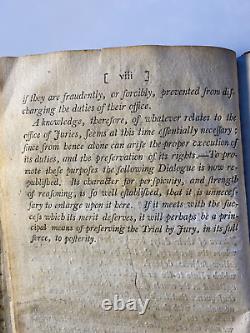 [ viii ]
if they are fraudently, or forcibly, prevented from dis-
charging the duties of their office.
A knowledge, therefore, of whatever relates to the
office of Juries, seems at this time essentially necessary;
since from hence alone can arise the proper execution of
its duties, and the preservation of its rights.—To pro-
mote these purposes the following Dialogue is now re-
published. Its character for perspicuity, and strength
of reasoning, is so well established, that it is unneces-
sary to enlarge upon it here. If it meets with the suc-
cess which its merit deserves, it will perhaps be a prin-
cipal means of preserving the Trial by Jury, in its full
force, to posterity.